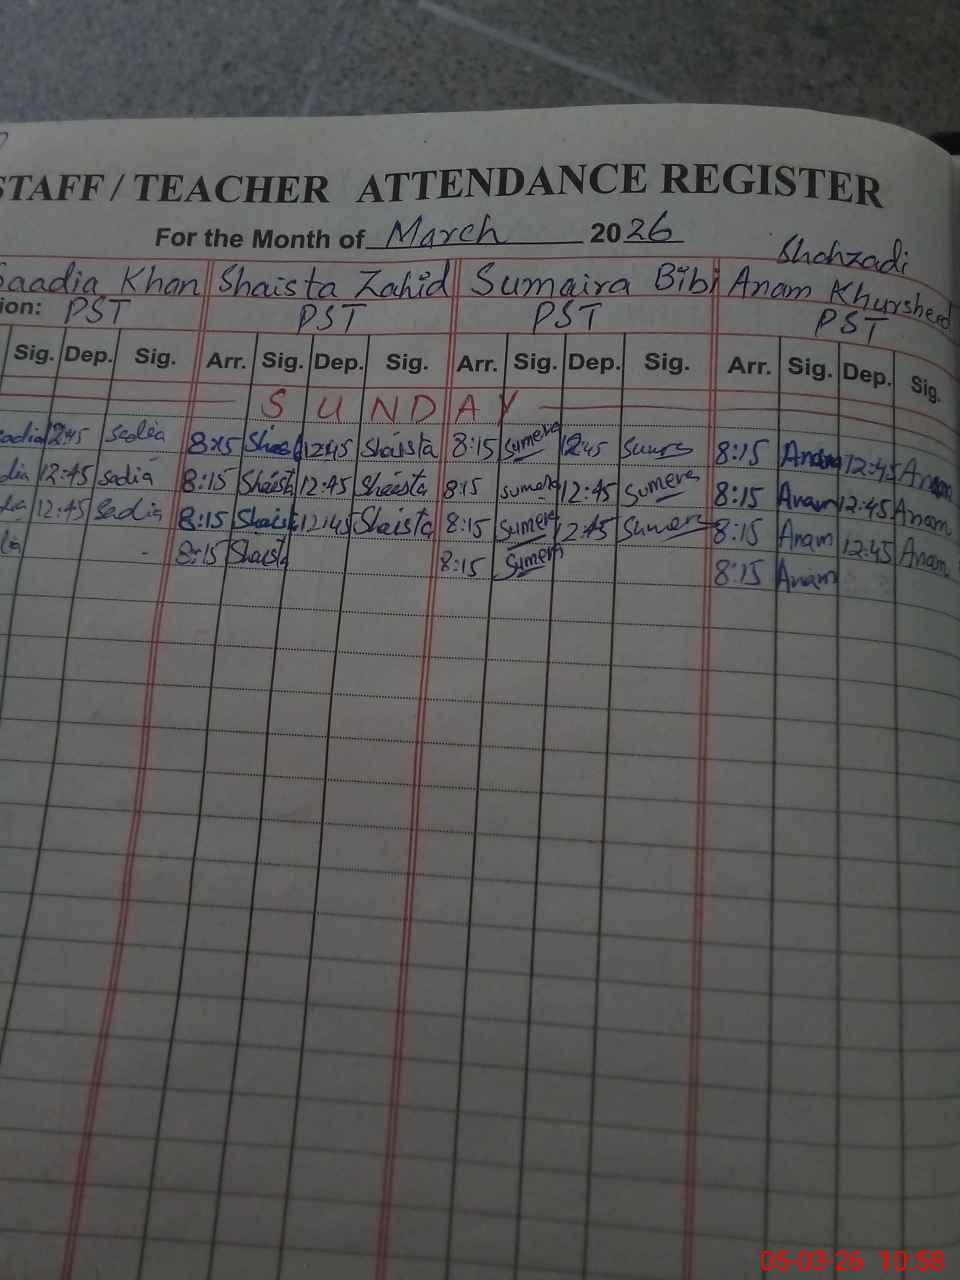 STAFF / TEACHER ATTENDANCE REGISTER
For the Month of March 2026
Saadia Khan Shaista Zahid Sumaira Bibi Shahzadi Anam Khursheed
ion: PST PST PST PST
Sig. Dep. Sig. Arr. Sig. Dep. Sig. Arr. Sig. Dep. Sig. Arr. Sig. Dep. Sig.
SUNDAY
adia 12:45 Sadia 8:15 12:45 Shaista 8:15 Sumera 12:45 8:15 Anam 12:45 Anam
dia 12:45 Sadia 8:15 Shaista 12:45 Shaista 8:15 Sumera 12:45 Sumera 8:15 Anam 12:45 Anam
dia 12:45 Sadia 8:15 Shaista 12:45 Shaista 8:15 Sumera 12:45 Sumera 8:15 Anam 12:45 Anam
8:15 Shaista 8:15 Sumera 8:15 Anam
05-03-26 10:58